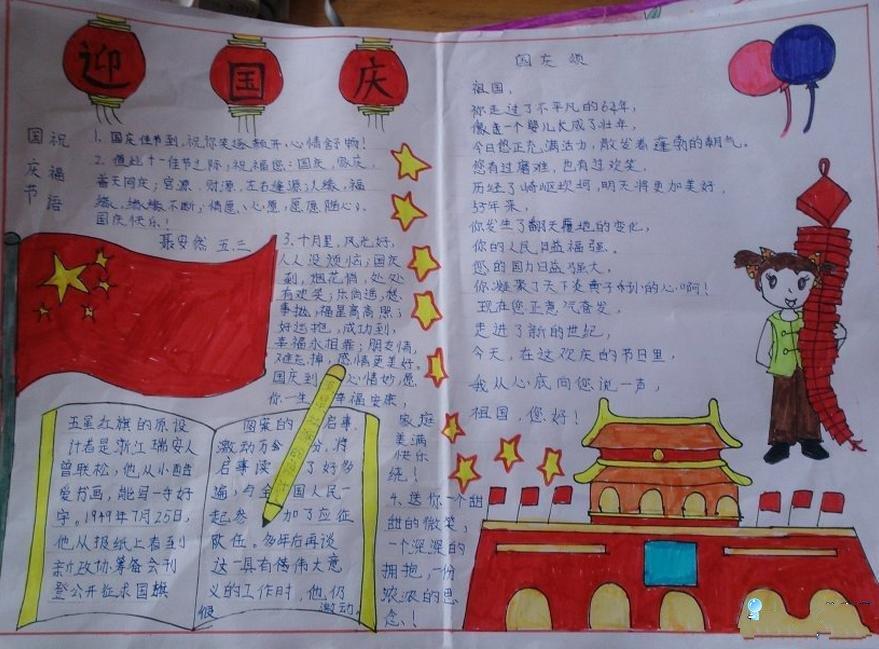 迎国庆
国庆节
祝福语
1. 国庆佳节到，祝你笑逐颜开，心情舒畅！
2. 值此十一佳节之际，祝福您：国庆，家庆，
普天同庆；官源，财源，左右逢源；人缘，福
缘，缘缘不断；情愿、心愿，愿愿随心。
国庆快乐！
聂安然 五.三
3. 十月里，风光好，
人人没烦恼；国庆
到，烟花俏，处处
有欢笑；乐尚逍，想
事抛，福星高高照；
好运抱，成功到，
幸福永相靠；朋友情，
难忘掉，感情更美好。
国庆到 心情妙，愿
你一生 幸福安康，
家庭
美满
快乐
绕！
4. 送你一个甜
甜的微笑，
一个深深的
拥抱，一份
浓浓的思
念！
五星红旗的原设
计者是浙江瑞安人
曾联松，他从小酷
爱书画，能写一手好
字。1949年7月25日，
他从报纸上看到
新政协筹备会刊
登公开征求国旗
图案的 启事，
激动万分，将
启事读 了好多
遍，与全 国人民一
起参 加了应征
队伍。多年后再谈
这一具有伟大意
义的工作时，他仍
很 激动。
国庆颂
祖国，
你走过了不平凡的62年，
像是一个婴儿长成了壮年，
今日您正充满活力，散发着蓬勃的朝气。
您有过磨难，也有过欢笑，
历经了崎岖坎坷，明天将更加美好，
57年来，
你发生了翻天覆地的变化，
你的人民日益福强。
您的国力日益强大，
你凝聚了天下炎黄子孙的心啊！
现在您正意气奋发，
走进了新的世纪，
今天，在这欢庆的节日里，
我从心底向您说一声，
祖国，您好！